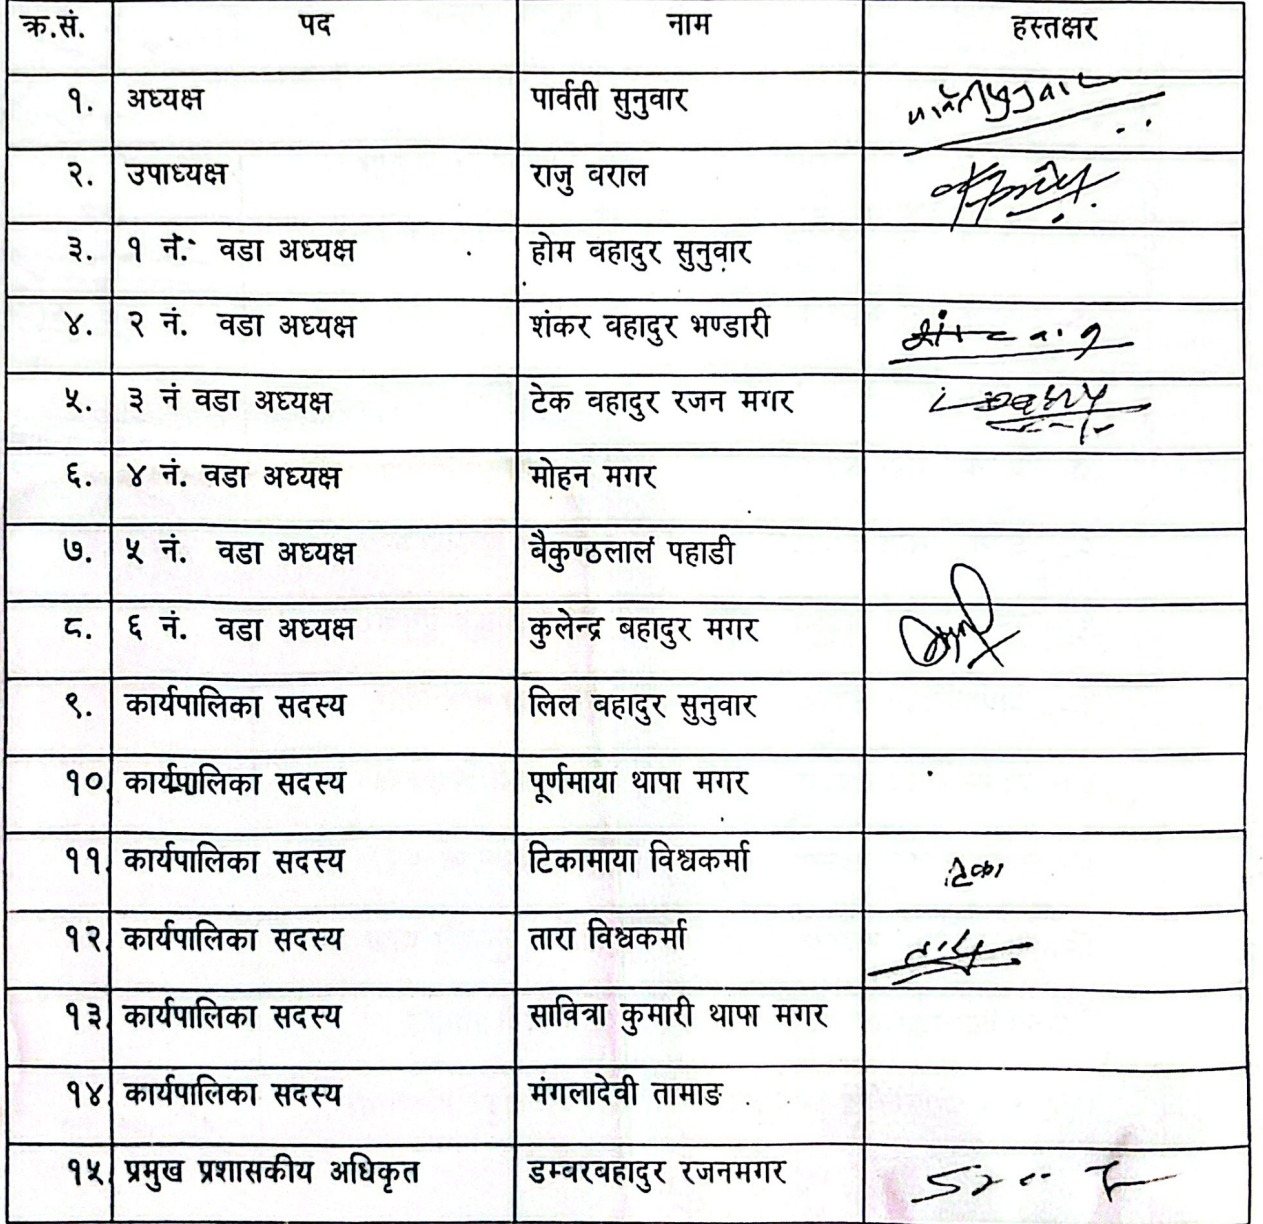 क्र.सं. पद नाम हस्तक्षर
१. अध्यक्ष पार्वती सुनुवार
२. उपाध्यक्ष राजु वराल
३. १ नं. वडा अध्यक्ष होम वहादुर सुनुवार
४. २ नं. वडा अध्यक्ष शंकर वहादुर भण्डारी
५. ३ नं वडा अध्यक्ष टेक वहादुर रजन मगर
६. ४ नं. वडा अध्यक्ष मोहन मगर
७. ५ नं. वडा अध्यक्ष वैकुण्ठलाल पहाडी
८. ६ नं. वडा अध्यक्ष कुलेन्द्र बहादुर मगर
९. कार्यपालिका सदस्य लिल वहादुर सुनुवार
१०. कार्यपालिका सदस्य पूर्णमाया थापा मगर
११. कार्यपालिका सदस्य टिकामाया विश्वकर्मा टिका
१२. कार्यपालिका सदस्य तारा विश्वकर्मा
१३. कार्यपालिका सदस्य सावित्रा कुमारी थापा मगर
१४. कार्यपालिका सदस्य मंगलादेवी तामाङ
१५. प्रमुख प्रशासकीय अधिकृत डम्वरवहादुर रजनमगर